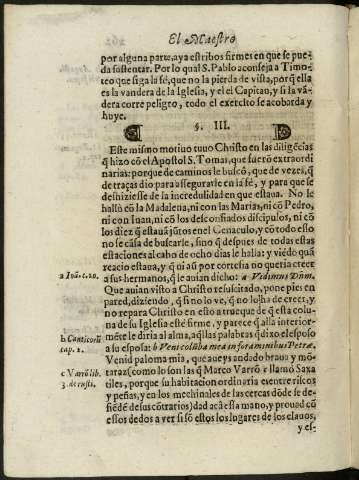 El Maestro
por alguna parte, aya estribos firmes en que se pue-
da sustentar. Por lo qual S. Pablo aconseja a Timo-
teo que siga la fé, que no la pierda de vista, porq̃ ella
es la vandera de la Iglesia, y el el Capitan, y si la vã-
dera corre peligro, todo el exercito se acobarda y
huye.
§. III.
Este mismo motiuo tuuo Christo en las diligẽcias
q̃ hizo cõ el Apostol S. Tomas, que fuerõ extraordi
narias: porque de caminos le buscó, que de vezes, q̃
de traças dio para assegurarle en la fé, y para que se
deshiziesse de la incredulidad en que estaua. No le
hallò cõ la Madalena, ni con las Marias, ni cõ Pedro,
ni con Iuan, ni cõ los desconfiados discipulos, ni cõ
los diez q̃ estauã jũtos en el Cenaculo, y cõ todo esso
no se cãsa de buscarle, sino q̃ despues de todas estas
estaciones al cabo de ocho dias le halla: y viẽdo quã
reacio estaua, y q̃ ni aũ por cortesia no queria creer
a sus hermanos, q̃ le auian dicho: a Vidimus Dñm.
Que auian visto a Christo resuscitado, pone pies en
pared, diziendo, q̃ si no lo ve, q̃ no lo ha de creer, y
no repara Christo en esto a trueque de q̃ esta colu-
na de su Iglesia esté firme, y parece q̃ allà interior-
mẽte le diria al alma, aq̃llas palabras q̃ dixo el esposo
a su esposa: b Veni colũba mea in foraminibus Petræ,
Venid paloma mia, que aueys andado braua y mõ-
taraz (como lo son las q̃ Marco Varrõ llamò Saxa
tiles, porque su habitacion ordinaria es entre riscos
y peñas, y en los mechinales de las cercas dõde se de-
fiẽdẽ de sus cõtrarios) dad acà essa mano, y prouad cõ
essos dedos a ver si sõ estos los lugares de los clauos,
y es-
a Ioã. c. 20.
b Canticorũ
cap. 2.
c Varrõ lib.
3. de rusti.